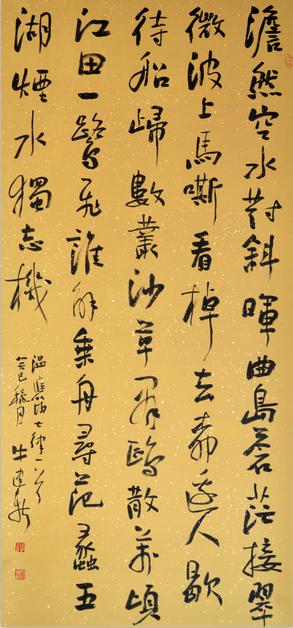 澹然空水對斜暉曲島蒼茫接翠
微波上馬嘶看棹去柳邊人歇
待船歸數叢沙草群鷗散萬頃
江田一鷺飛誰解乘舟尋范蠡五
湖煙水獨忘機
温庭筠七律一首
癸巳穐月